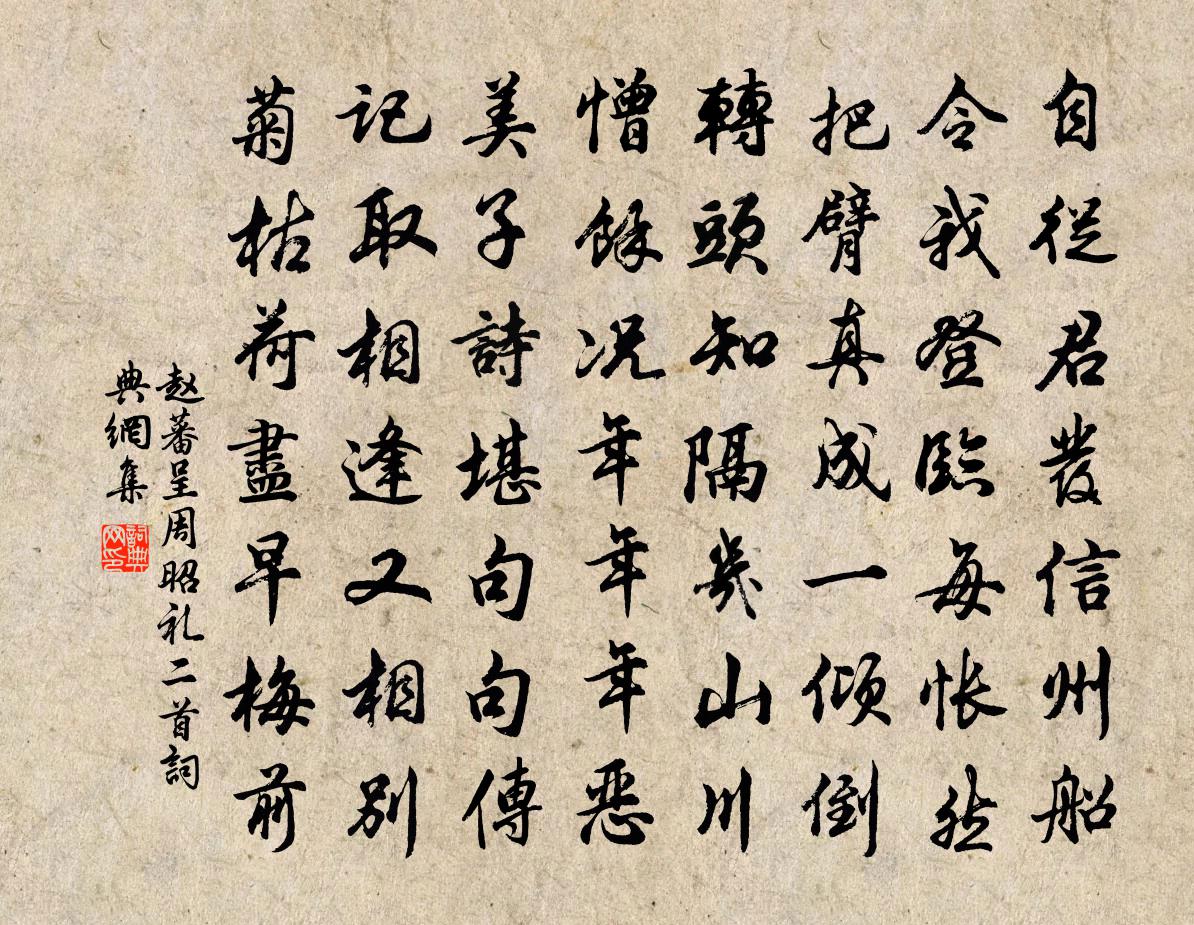 自從君發信州船
令我登臨每悵然
把臂真成一傾倒
轉頭知隔幾山川
憎餘況年年年惡
美子詩堪句句傳
記取相逢又相別
菊枯荷盡早梅前
赵蕃呈周昭礼二首詞
典網集
詞典
网印